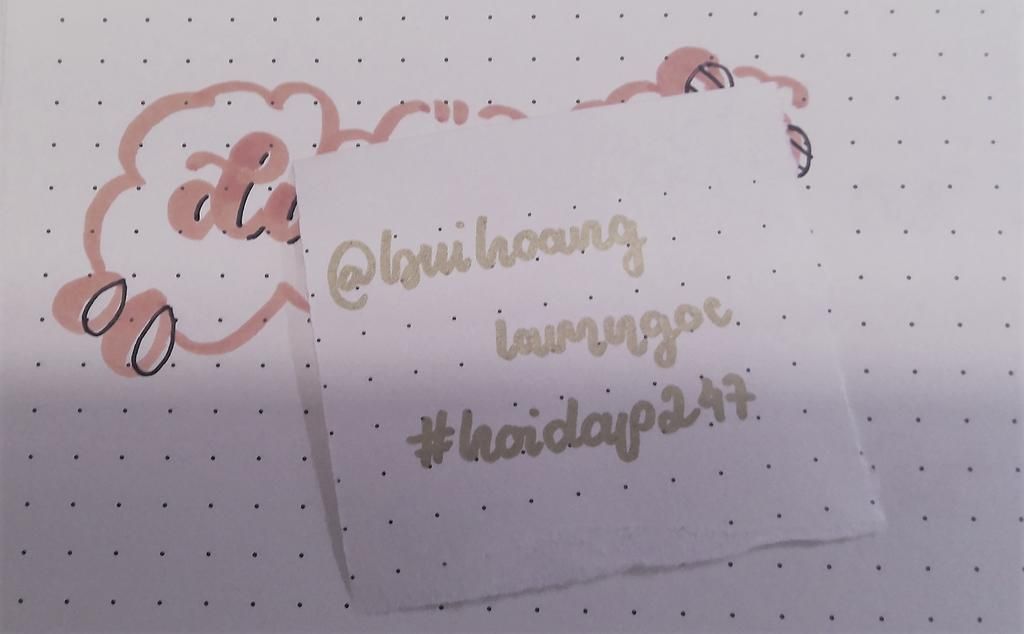 @buihoang
lamngoc
#hoidap247